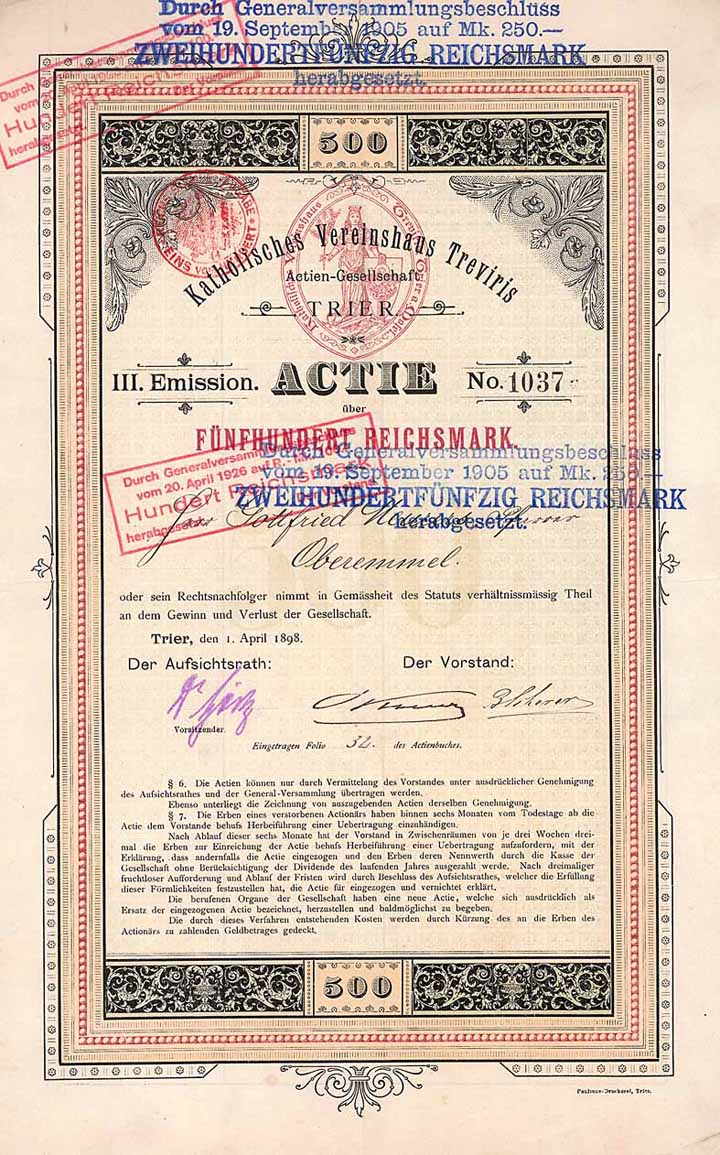 Durch Generalversammlungsbeschluss
vom 19. September 1905 auf Mk. 250.—
ZWEIHUNDERTFÜNFZIG REICHSMARK
herabgesetzt.
Durch
vom
Hundert Reichs
herabgesetzt.
Der Vorst
500
Katholisches Vereinshaus Treviris
Actien-Gesellschaft
TRIER.
III. Emission. ACTIE No. 1037
über
FÜNFHUNDERT REICHSMARK.
Durch Generalversammlungsbeschluss
vom 19. September 1905 auf Mk. 250.—
ZWEIHUNDERTFÜNFZIG REICHSMARK
herabgesetzt.
Durch Generalversammlungsbeschluss
vom 20. April 1926 auf R. M. 100
Hundert Reichsmark
herabgesetzt. Der Vorstand
Gottfried
Oberemmel.
oder sein Rechtsnachfolger nimmt in Gemässheit des Statuts verhältnissmässig Theil
an dem Gewinn und Verlust der Gesellschaft.
Trier, den 1. April 1898.
Der Aufsichtsrath: Der Vorstand:
B Scherer
Vorsitzender.
Eingetragen Folio 32. des Actienbuches.
§ 6. Die Actien können nur durch Vermittelung des Vorstandes unter ausdrücklicher Genehmigung
des Aufsichtsrathes und der General-Versammlung übertragen werden.
Ebenso unterliegt die Zeichnung von auszugebenden Actien derselben Genehmigung.
§ 7. Die Erben eines verstorbenen Actionärs haben binnen sechs Monaten vom Todestage ab die
Actie dem Vorstande behufs Herbeiführung einer Uebertragung einzuhändigen.
Nach Ablauf dieser sechs Monate hat der Vorstand in Zwischenräumen von je drei Wochen drei-
mal die Erben zur Einreichung der Actie behufs Herbeiführung einer Uebertragung aufzufordern, mit der
Erklärung, dass andernfalls die Actie eingezogen und den Erben deren Nennwerth durch die Kasse der
Gesellschaft ohne Berücksichtigung der Dividende des laufenden Jahres ausgezahlt werde. Nach dreimaliger
fruchtloser Aufforderung und Ablauf der Fristen wird durch Beschluss des Aufsichtsrathes, welcher die Erfüllung
dieser Förmlichkeiten festzustellen hat, die Actie für eingezogen und vernichtet erklärt.
Die berufenen Organe der Gesellschaft haben eine neue Actie, welche sich ausdrücklich als
Ersatz der eingezogenen Actie bezeichnet, herzustellen und baldmöglichst zu begeben.
Die durch dieses Verfahren entstehenden Kosten werden durch Kürzung des an die Erben des
Actionärs zu zahlenden Geldbetrages gedeckt.
500
Paulinus-Druckerei, Trier.